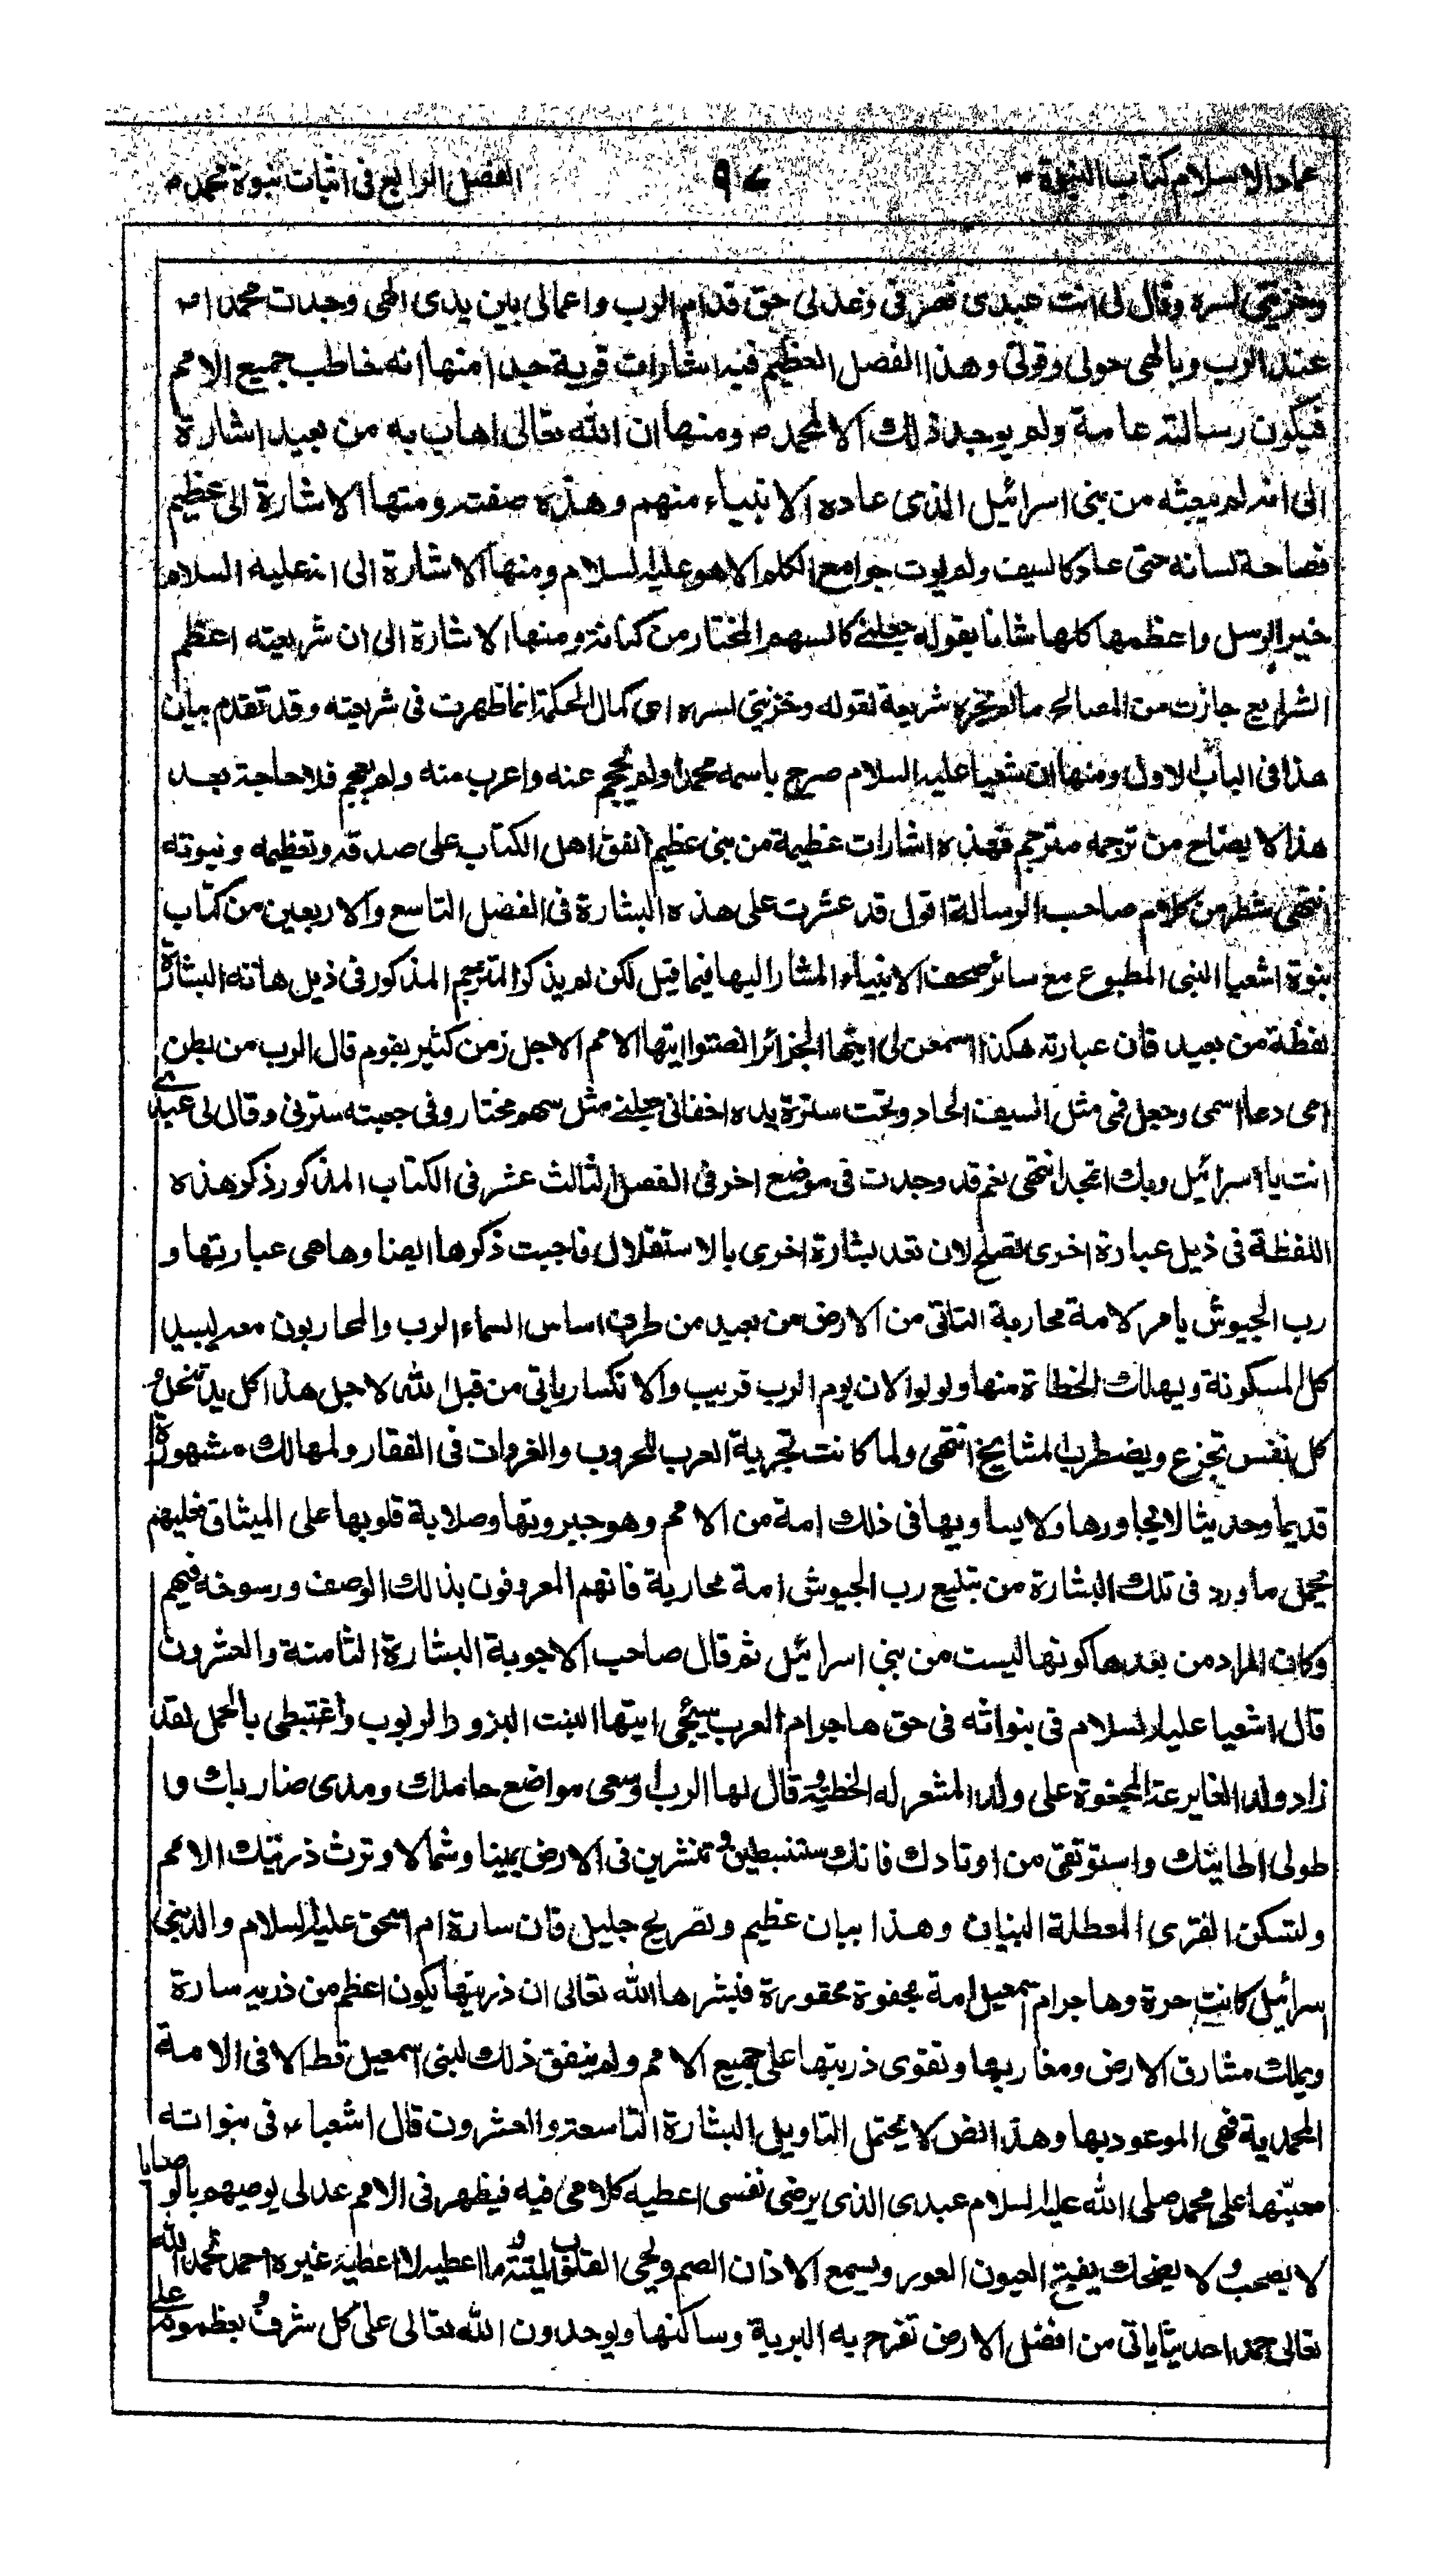 عماد الاسلام كتاب النبوة ٩٧ الفصل الرابع فى اثبات نبوة محمد ص
وخزنتى لسره وقال لى انت عبدى فصرفى وعدلى حق قدام الرب واعمالى بين يدى الهى وجدت محمدا ص
عند الرب وبالهى حولى وقوتى وهذا الفصل العظيم فيه اشارات قوية جدا منها انه خاطب جميع الامم
فيكون رسالته عامة ولم يوجد ذلك الا لمحمد ص ومنها ان الله تعالى اهاب به من بعيد اشارة
الى انه لم يبعثه من بنى اسرائيل الذى عاده الانبياء منهم وهذه صفته ومنها الاشارة الى عظيم
فصاحة لسانه حتى عاد كالسيف ولم يوت جوامع الكلم الا هو عليه السلام ومنها الاشارة الى انه عليه السلام
خير الرسل واعظمها كلها شانا بقوله جعلنى كالسهم المختار من كنانته ومنها الاشارة الى ان شريعته اعظم
الشرايع حازت من المصالح ما لم تحزه شريعة لقوله وخزنتى لسره اى كمال الحكمة انما ظهرت فى شريعته وقد تقدم بيان
هذا فى الباب الاول ومنها ان شعيا عليه السلام صرح باسمه محمدا ولم يحجم عنه واعرب منه ولم يعجم فلا حاجة بعد
هذا لايضاح من ترجمه مترجم فهذه اشارات عظيمة من نبى عظيم اتفق اهل الكتاب على صدقه وتعظيمه ونبوته
انتهى شطر من كلام صاحب الرسالة اقول قد عثرت على هذه البشارة فى الفصل التاسع والاربعين من كتاب
نبوة اشعيا النبى المطبوع مع سائر صحف الانبياء المشار اليها فيما قبل لكن لم يذكر المترجم المذكور فى ذيل هاته البشارة
لفظة من بعيد فان عبارته هكذا اسمعن لى ايتها الجزائر انصتوا ايتها الامم الاجل زمن كثير يقوم قال الرب من بطن
امى دعا اسمى وجعل فمى مثل السيف الحاد وتحت سترة يده اخفانى جعلنى مثل سهم مختار وفى جعبته سترنى وقال لى عبدى
انت يا اسرائيل وبك اتمجد انتهى نعم قد وجدت فى موضع اخر فى الفصل الثالث عشر فى الكتاب المذكور ذكر هذه
اللفظة فى ذيل عبارة اخرى تصلح لان تعد بشارة اخرى بالاستقلال فاجبت ذكرها ايضا وها هى عبارتها و
رب الجيوش يامر لامة محاربة التاتى من الارض من بعيد من طرف اساس السماء الرب والمحاربون معه ليبيد
كل المسكونة ويهلك الخطاة منها ولولوا لان يوم الرب قريب والانكسار ياتى من قبل الله لاجل هذا كل يد تنحل و
كل نفس تجزع ويضطرب المشايخ انتهى ولما كانت تجربة العرب للحروب والغزوات فى الفقار ولمهالك مشهورة
قديما وحديثا لا يجاورها ولا يساويها فى ذلك امة من الامم وهو جبروتها وصلابة قلوبها على الميثاق فعليهم
يحمل ما ورد فى تلك البشارة من رب الجيوش امة محاربة فانهم المعروفون بذلك الوصف ورسوخه فيهم
وكان المراد من بعدها كونها ليست من بنى اسرائيل ثم قال صاحب الاجوبة البشارة الثامنة والعشرون
قال اشعيا عليه السلام فى نبواته فى حق هاجر ام العرب سبحى ايتها البنت النزور الرقوب واغتبطى بالحمل لقد
زاد ولد المجفوة على ولد وقال لها الرب اوسعى مواضع خيامك ومدى مضاربك و
طولى اطنابك واستوثقى من اوتادك فانك ستنبسطين و تنشرين فى الارض يمينا وشمالا وترث ذريتك الامم
ولتسكن القرى المعطلة البنيان وهذا بيان عظيم وتصريح جليل فان سارة ام اسحق عليه السلام والد بنى
اسرائيل كانت حرة وهاجر ام اسمعيل امة مجفوة محقورة فبشرها الله تعالى ان ذريتها يكون اعظم من ذرية سارة
ويملك مشارق الارض ومغاربها وتقوى ذريتها على جميع الامم ولم يتفق ذلك لبنى اسمعيل قط الا فى الامة
المحمدية فهى الموعود بها وهذا نص لا يحتمل التاويل البشارة التاسعة والعشرون قال اشعياء فى نبواته
منبها على محمد صلى الله عليه السلام عبدى الذى يرضى نفسى اعطيه كلامى فيه فيظهر فى الامم عدلى يوصيهم بالوصايا
لا يصخب و لا يضحك يفتح العيون العور ويسمع الاذان الصم ويحى القلوب الميتة وما اعطيه لا اعطيه غيره احمد يحمد الله
تعالى حمدا حديثا ياتى من افضل الارض تفرح به البرية وساكنها ويوحدون الله تعالى على كل شرف و يعظمونه على